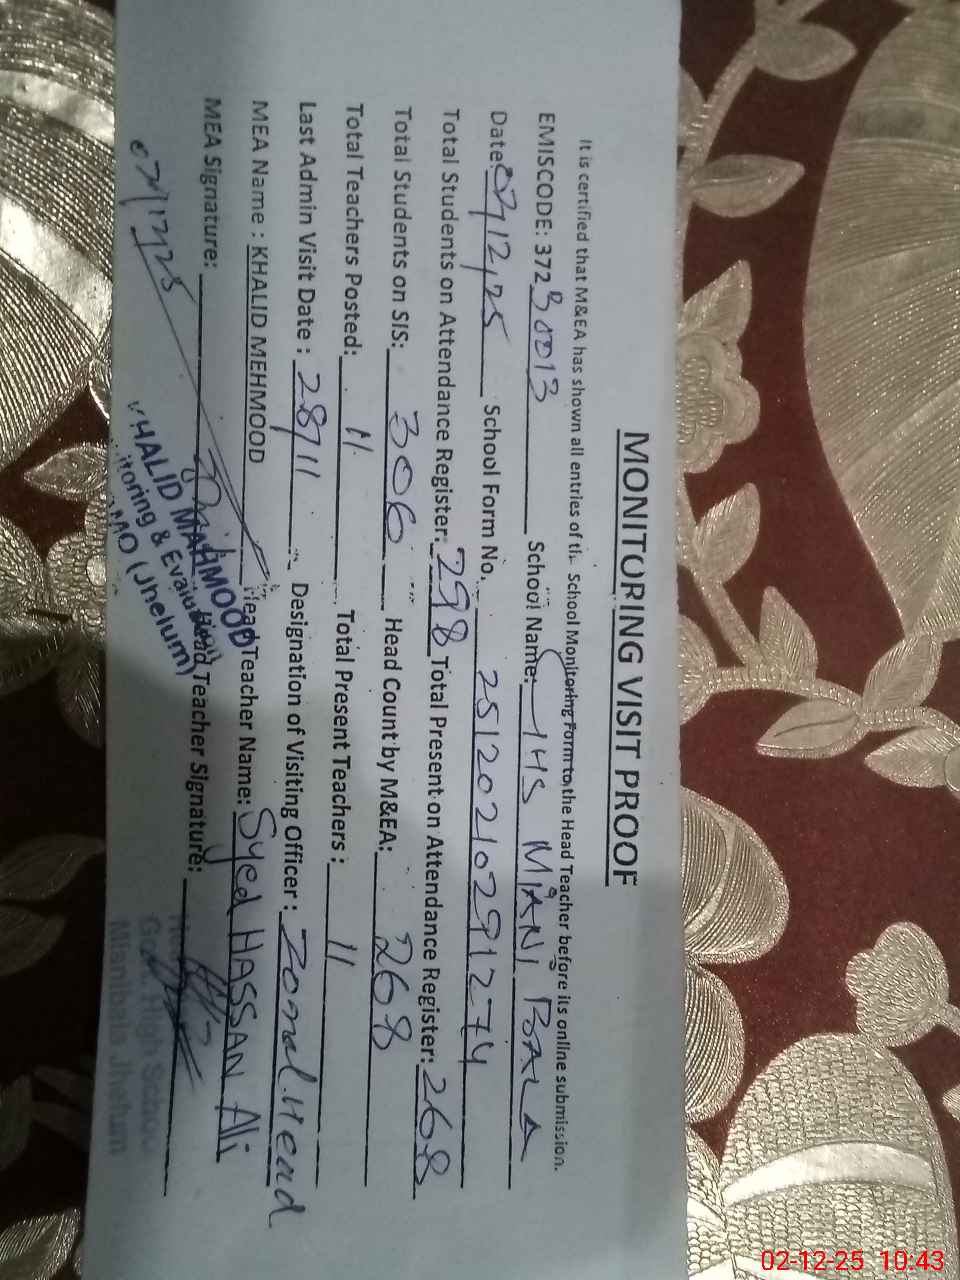 MONITORING VISIT PROOF
It is certified that M&EA has shown all entries of the School Monitoring Form to the Head Teacher before its online submission.
EMISCODE: 37230013 School Name: GHS MIANI BALA
Date: 02/12/25 School Form No. 25120210291274
Total Students on Attendance Register: 298 Total Present on Attendance Register: 268
Total Students on SIS: 306 Head Count by M&EA: 268
Total Teachers Posted: 11 Total Present Teachers: 11
Last Admin Visit Date: 28/11 Designation of Visiting Officer: Zonal.Head
MEA Name: KHALID MEHMOOD Head Teacher Name: Syed HASSAN Ali
MEA Signature: Head Teacher Signature:
02/12/25
KHALID MAHMOOD
itoring & Evaluation
(Jhelum)
Govt. High School
Mianibala Jhelum
02-12-25 10:43